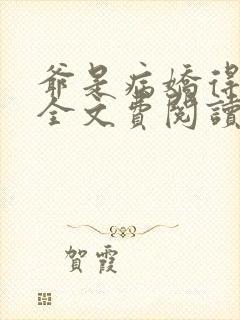 爺是病嬌得
全文費閱讀
賀霞